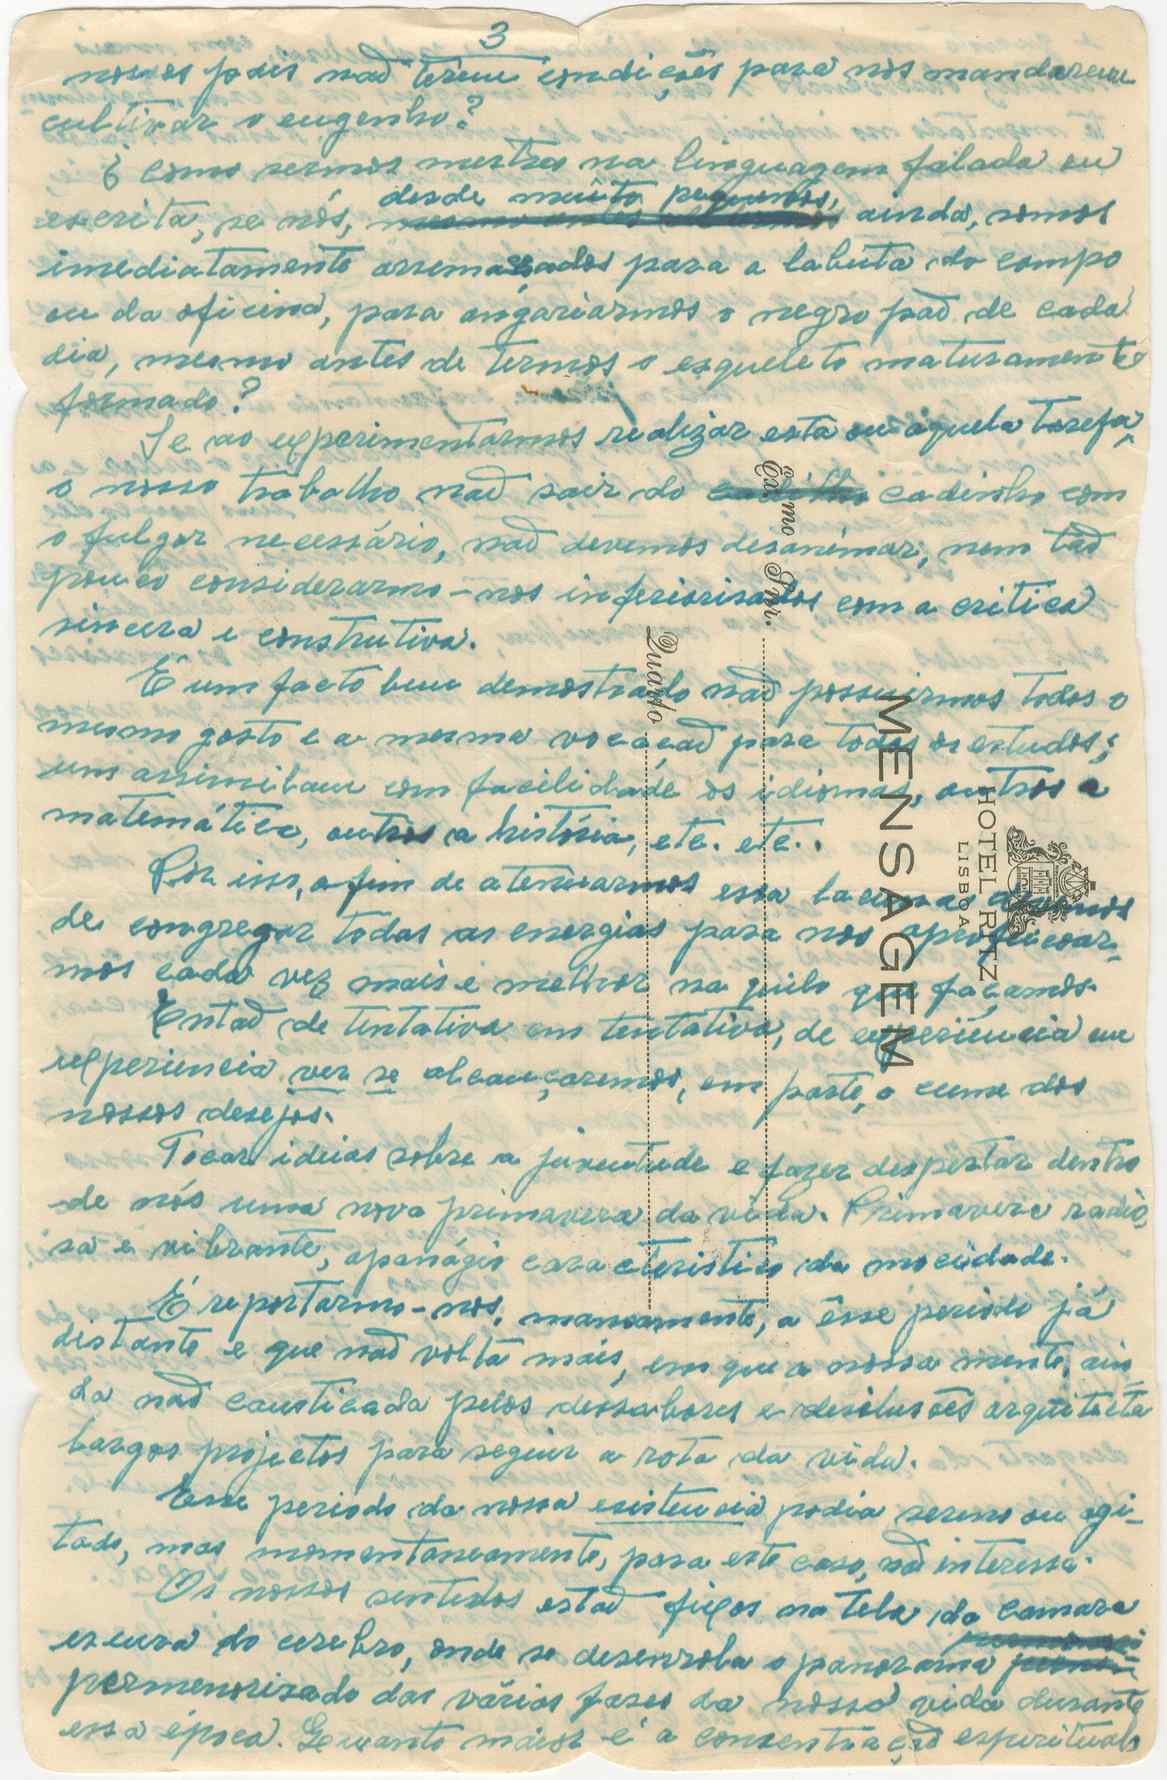 3
nossos pais naõ terem condições para nos mandarem
cultivar o engenho?
E como sermos mestres na linguagem falada ou
escrita, se nós, desde muito pequenos, ainda, somos
imediatamente arremassados para a labuta do campo
ou da oficina, para angariarmos o negro paõ de cada
dia, mesmo antes de termos o esqueleto maturamente
formado?
Se ao experimentarmos realizar esta ou aquela tarefa,
o nosso trabalho naõ sair do cadinho com
o fulgor necessário, naõ devemos desanimar, nem taõ
pouco considerarmo-nos inferiorisados com a critica
sincera e construtiva.
É um facto bem demostrado naõ possuirmos todos o
mesmo gosto e a mesma vocaçaõ para todos os estudos;
um assimilam com facilidade os idiomas, outros a
matemática, outros a história, etc. etc..
Por isso, a fim de atenuarmos essa lacunas devemos
de congregar todas as energias para nos aperfeiçoar-
mos cada vez mais e melhor na quilo que façamos.
Entaõ de tentativa em tentativa, de experiência em
experiencia ver se alcançaremos, em parte, o cume dos
nossos desejos.
Tocar ideias sobre a juventude e fazer despertar dentro
de nós uma nova primavera da vida. Primavera radio
sa e vibrante, apanágio caracteristico da mocidade.
É reportarmo-nos, mansamente, a êsse periodo já
distante e que naõ volta mais, em que a nossa mente, ain
da naõ causticada pelos dessabores e desilusões arquitecta
largos projectos para seguir a rota da vida.
Esse periodo da nossa existencia podia sereno ou agi-
tado, mas momentaneamente, para este caso, naõ interessa.
Os nossos sentidos estaõ fixos na tela da camara
escura do cerebro, onde se desenrola o panorama
permenorisado das várias fases da nossa vida durante
essa época. Quanto maior é a consentraçaõ espiritual
Ex.mo Snr.
Quarto
MENSAGEM
HOTEL RITZ
LISBOA